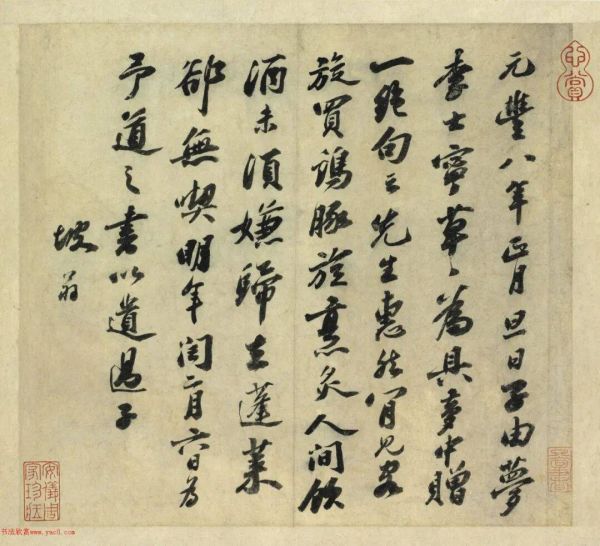 元豐八年正月旦日子由夢
李士寧草草為具夢中贈
一絕句云先生惠然肯見客
旋買雞豚旋烹炙人間飲
酒未須嫌歸去蓬萊
卻無喫明年閏二月六日為
予道之書以遺過子
坡翁
安儀周家珍藏
书法欣赏www.yac8.com